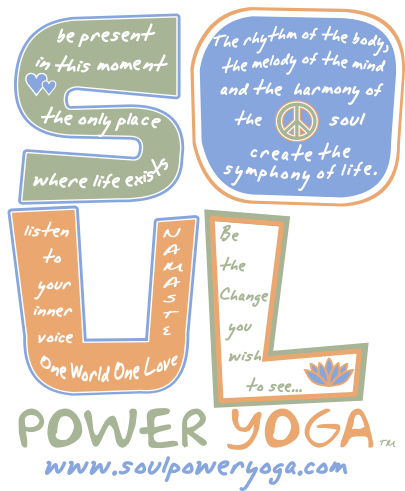 be present
in this moment
the only place
where life exists
The rhythm of the body,
the melody of the mind
and the harmony of
the soul
create the
symphony of life.
listen
to
your
inner
voice
NAMASTE
One World One Love
Be
the
Change
you
wish
to see...
POWER YOGA TM
www.soulpoweryoga.com